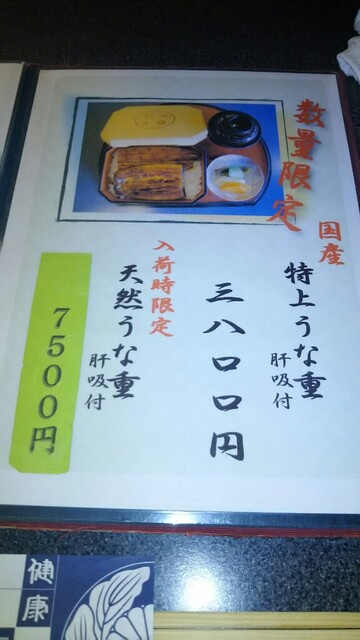 数量限定
国産
特上うな重
肝吸付
三八〇〇円
入荷時限定
天然うな重
肝吸付
7500円
健康